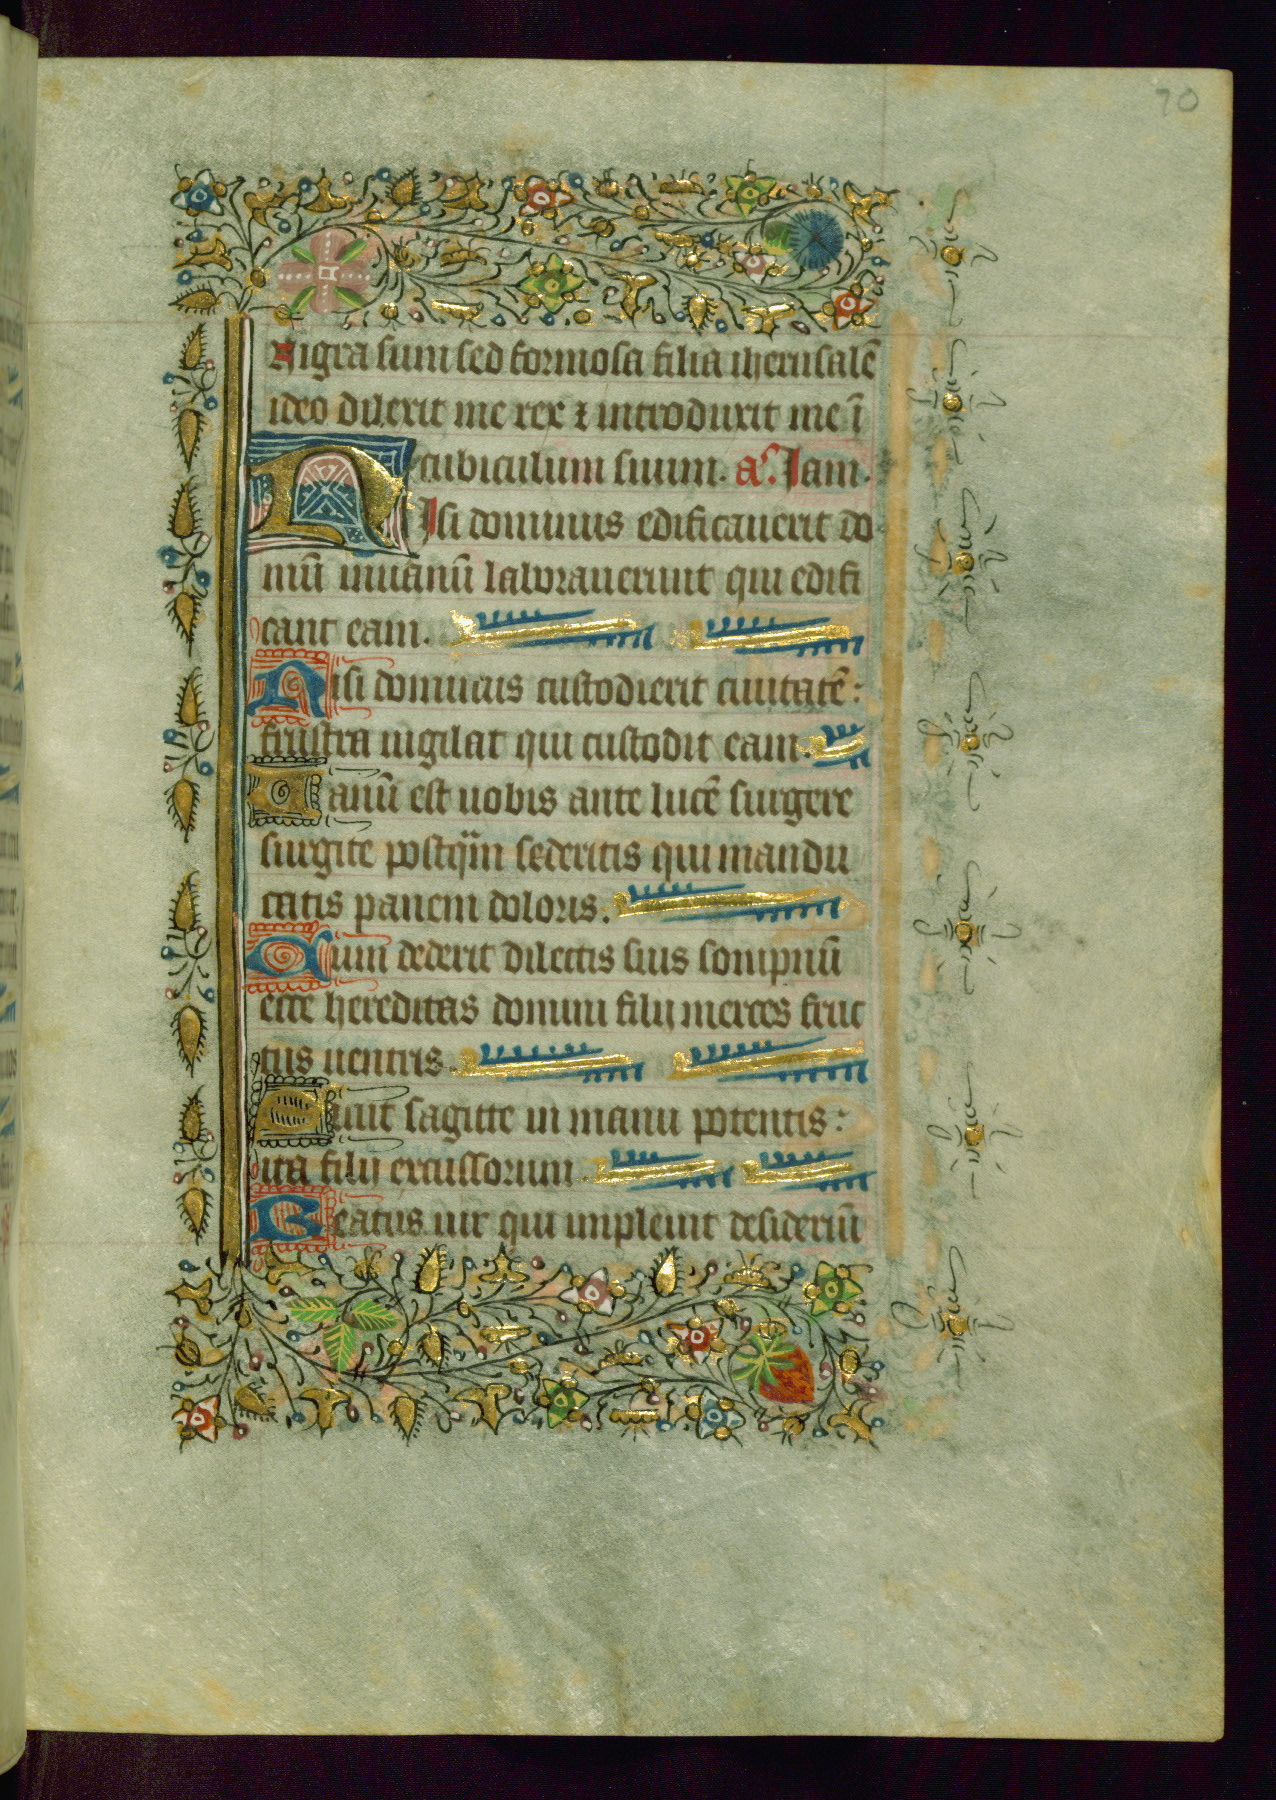 70
Nigra sum sed formosa filia iherusalē
ideo dilexit me rex ⁊ introduxit me ī
cubiculum suum. aͬ. Iam.
NIsi dominus edificauerit do
mū inuanū laborauerunt qui edifi
cant eam.
Nisi dominus custodierit ciuitatē:
frustra uigilat qui custodit eam.
Uanū est uobis ante lucē surgere
surgite postq̄m sederitis qui mandu
catis panem doloris.
Cum dederit dilectis suis sompnū
ecce hereditas domini filij merces fruc
tus uentris.
Sicut sagitte in manu potentis:
ita filij excussorum.
Beatus uir qui impleuit desideriū